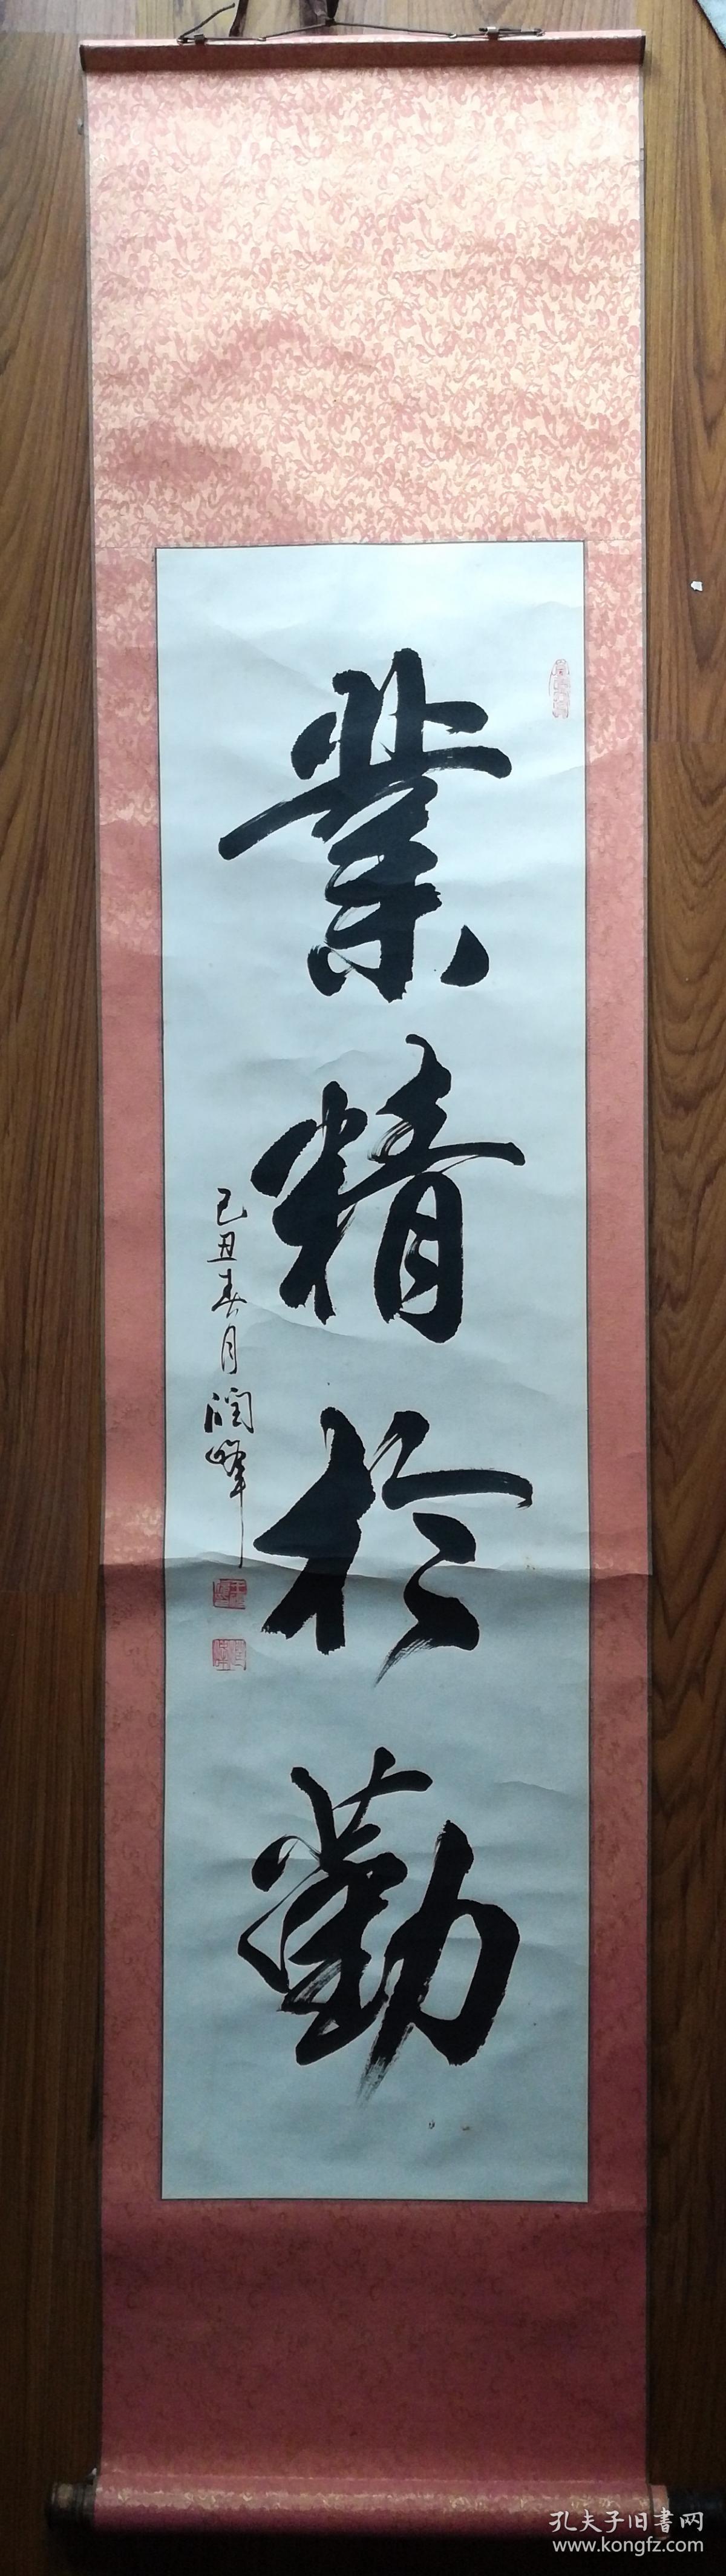 業精於勤
己丑春月润峰
孔夫子旧書网
www.kongfz.com